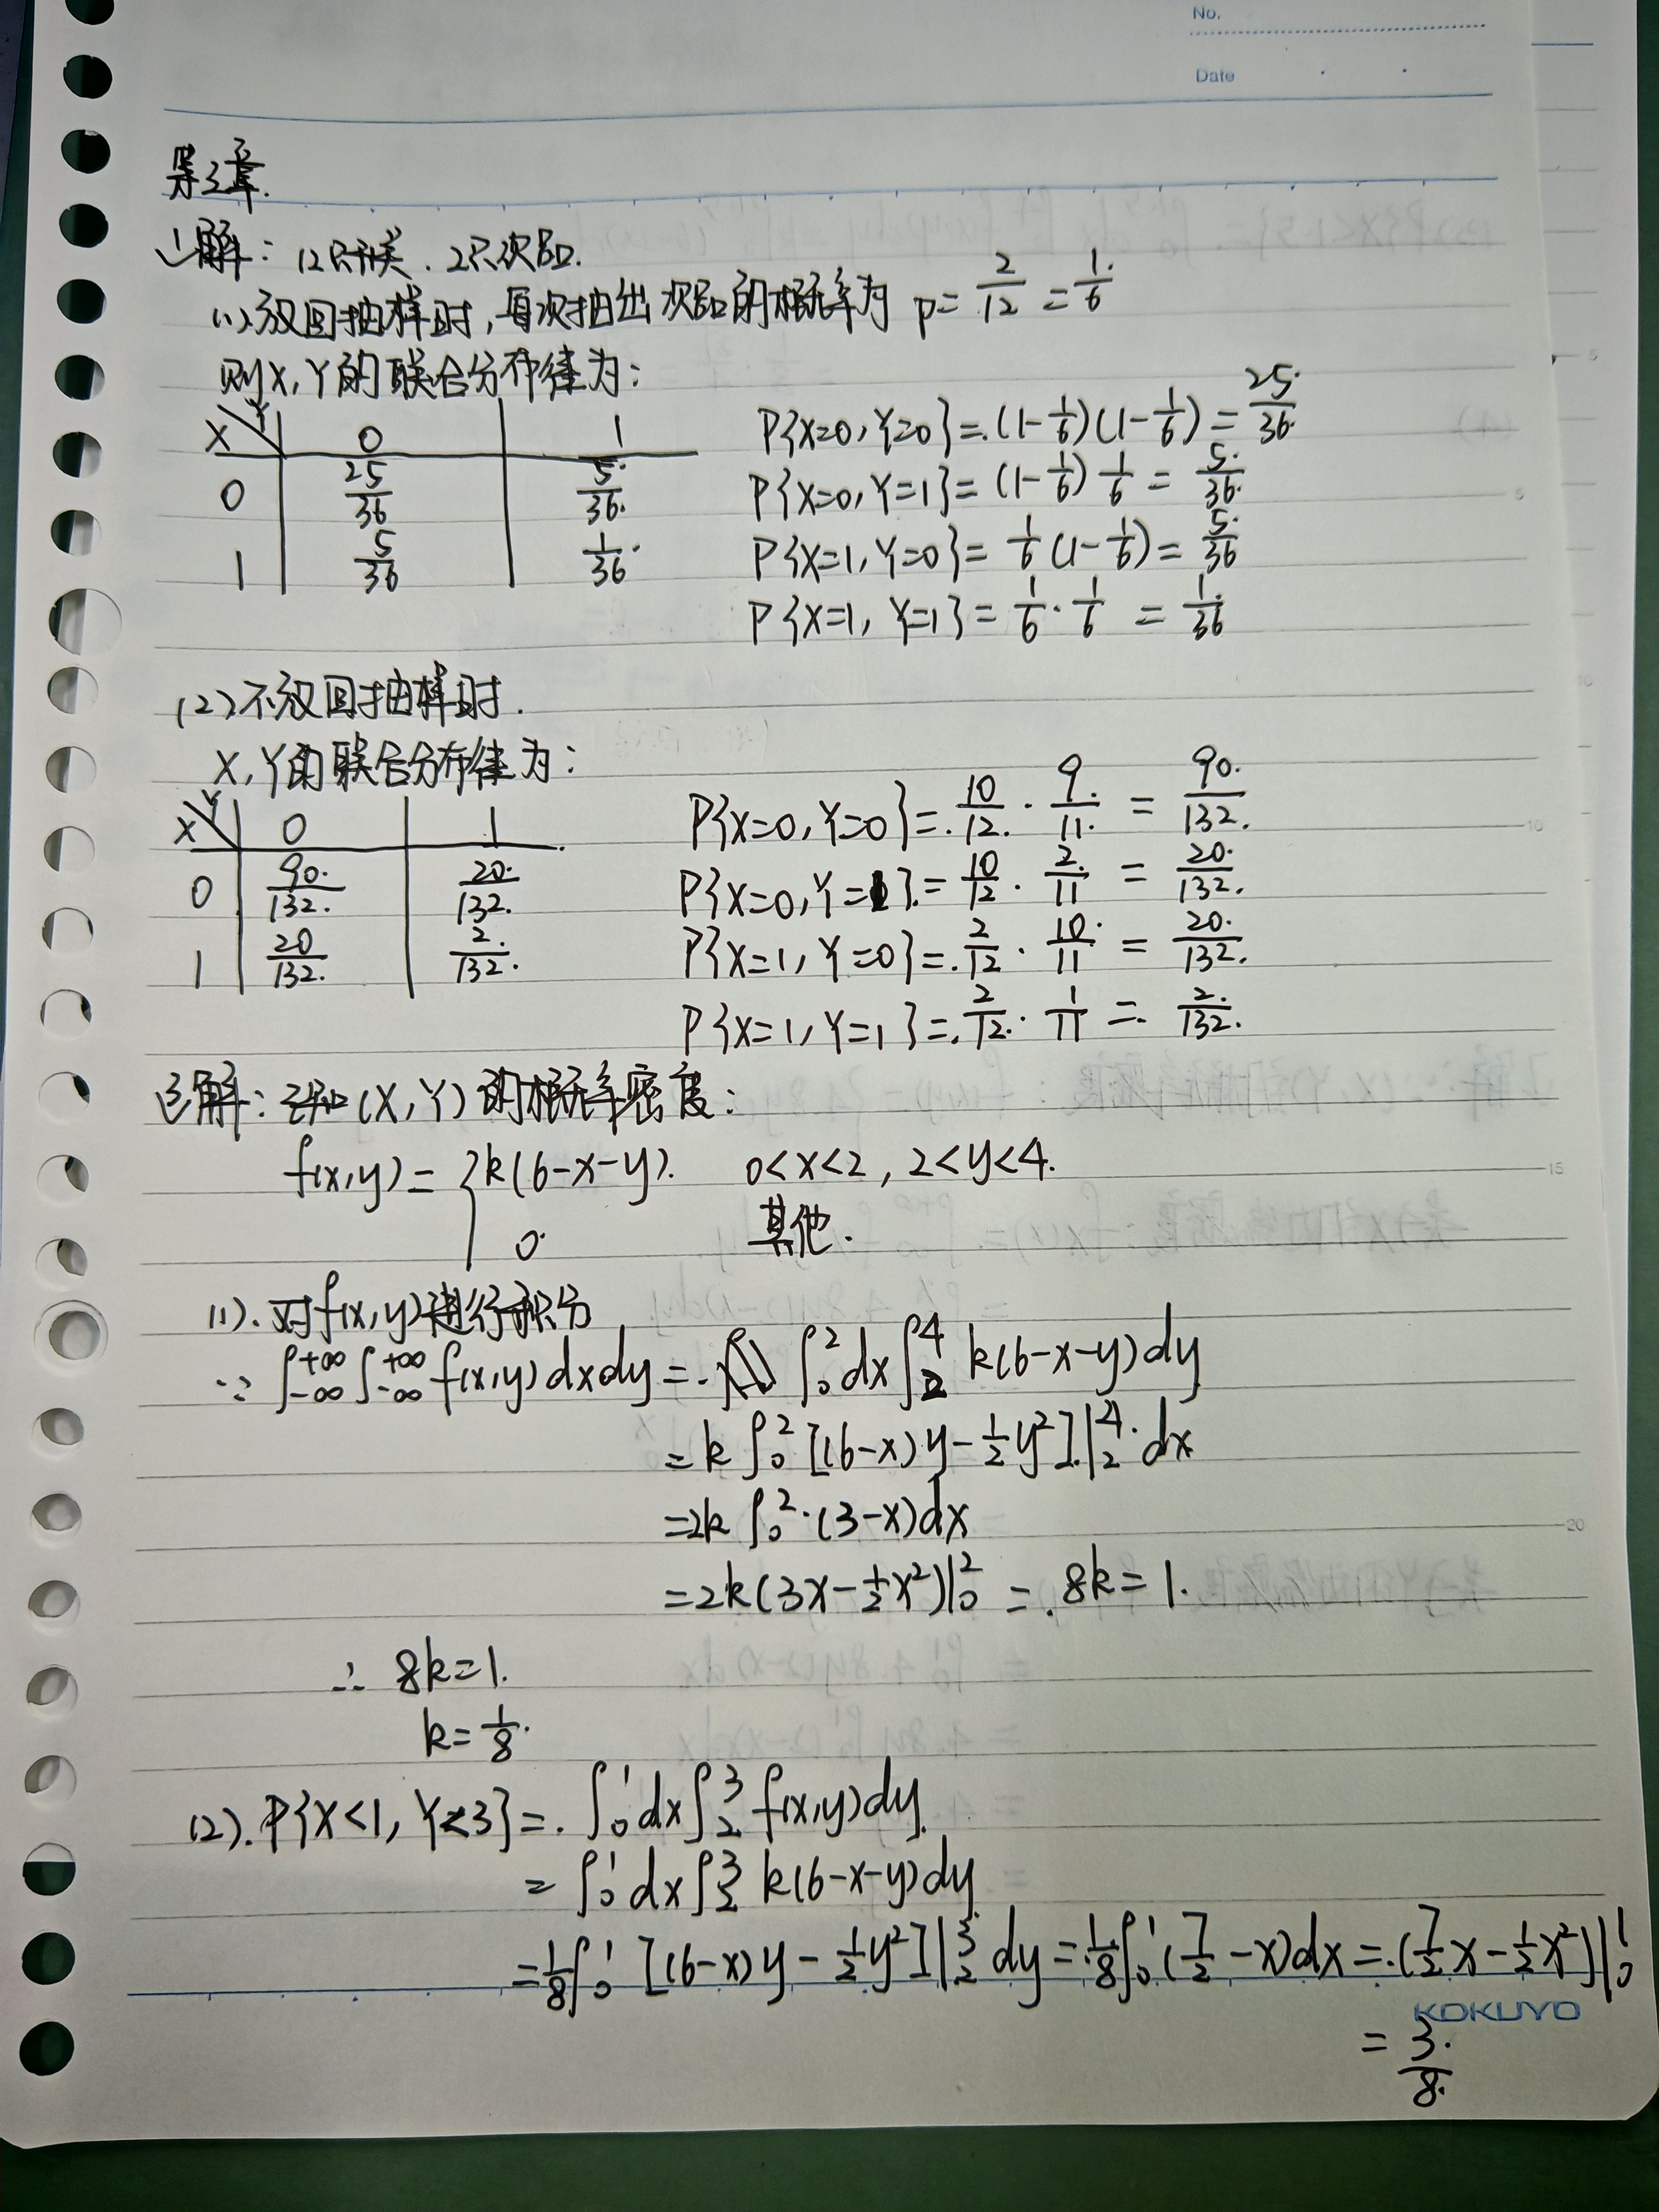 No.
Date
第3章.
1解: 12只开关. 2只次品.
(1)放回抽样时, 每次抽出次品的概率为 p= 2/12 = 1/6
则X,Y的联合分布律为:
X\Y 0 1
0 25/36 5/36
1 5/36 1/36
P{X=0,Y=0}=(1-1/6)(1-1/6)=25/36
P{X=0,Y=1}=(1-1/6)1/6=5/36
P{X=1,Y=0}=1/6(1-1/6)=5/36
P{X=1,Y=1}=1/6·1/6=1/36
(2)不放回抽样时.
X,Y的联合分布律为:
X\Y 0 1
0 90/132 20/132
1 20/132 2/132
P{X=0,Y=0}=10/12·9/11=90/132
P{X=0,Y=1}=10/12·2/11=20/132
P{X=1,Y=0}=2/12·10/11=20/132
P{X=1,Y=1}=2/12·1/11=2/132
3解: 已知(X,Y)的概率密度:
f(x,y)={k(6-x-y). 0<x<2, 2<y<4.
0 其他.
(1).对f(x,y)进行积分
∵ ∫_{-∞}^{+∞}∫_{-∞}^{+∞}f(x,y)dxdy=∫_0^2dx∫_2^4 k(6-x-y)dy
=k∫_0^2[(6-x)y-1/2y²]|_2^4 dx
=2k∫_0^2(3-x)dx
=2k(3x-1/2x²)|_0^2=8k=1.
∴ 8k=1.
k=1/8
(2).P{X<1,Y<3}=∫_0^1dx∫_2^3f(x,y)dy
=∫_0^1dx∫_2^3 k(6-x-y)dy
=1/8∫_0^1[(6-x)y-1/2y²]|_2^3 dy=1/8∫_0^1(7/2-x)dx=(7/2x-1/2x²)|_0^1
KOKUYO
=3/8